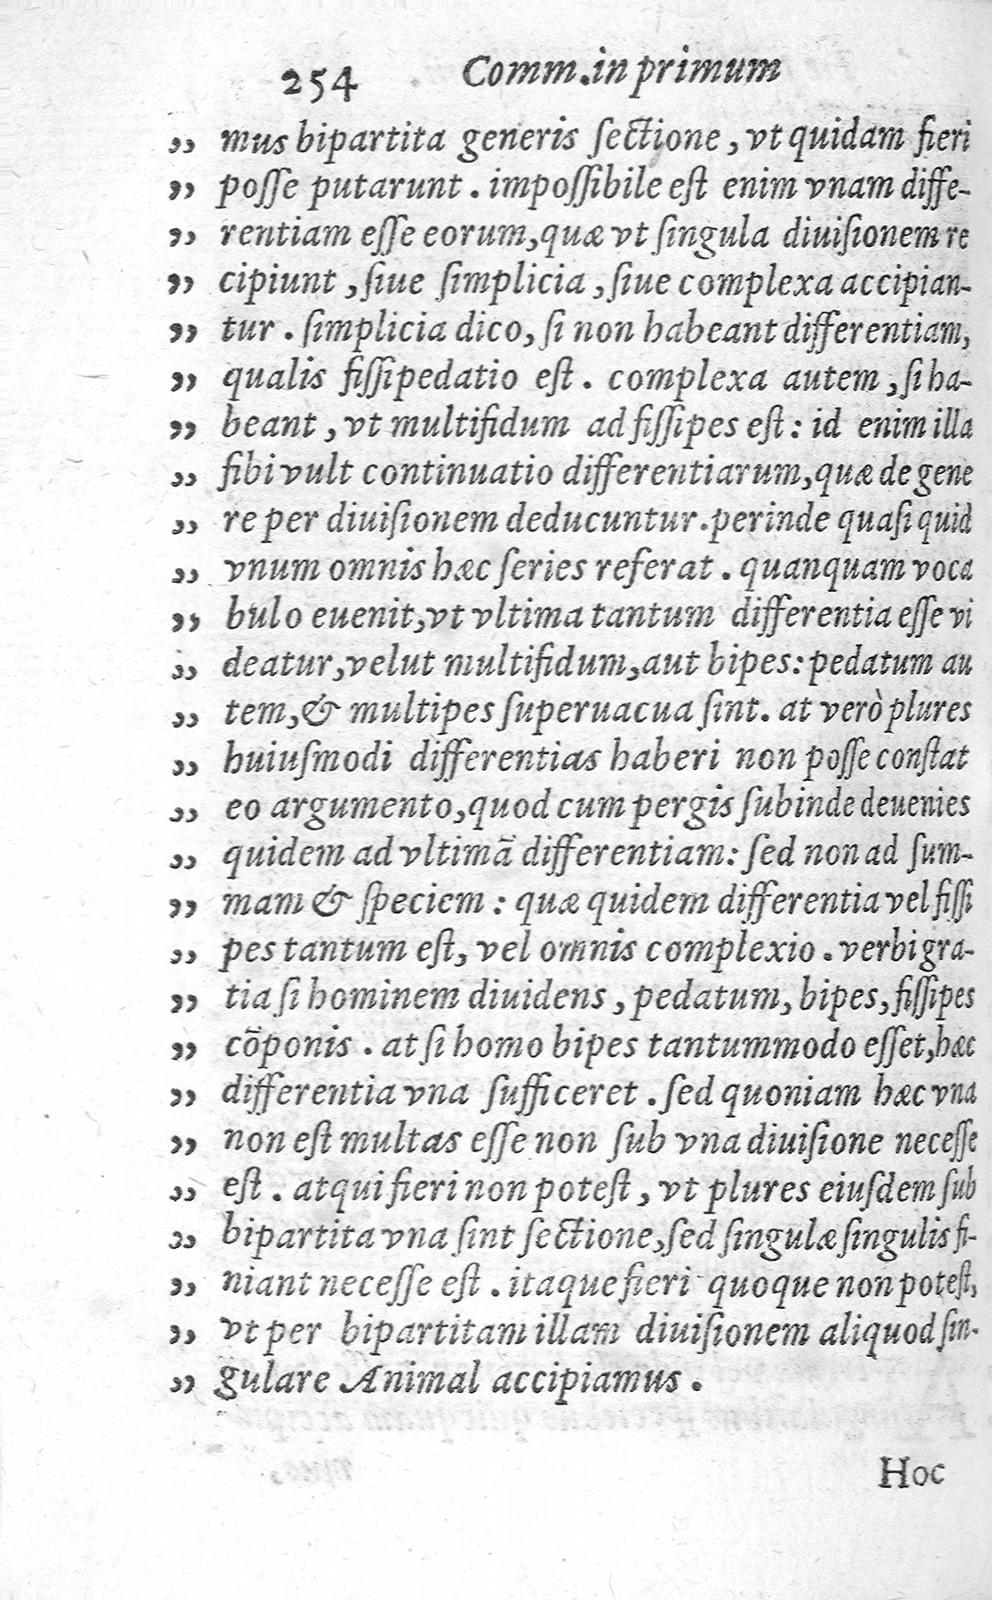 254 Comm. in primum
„ mus bipartita generis ſectione, vt quidam fieri
„ poſſe putarunt. impoſſibile eſt enim vnam diffe-
„ rentiam eſſe eorum, quæ vt ſingula diuiſionem re
„ cipiunt, ſiue ſimplicia, ſiue complexa accipian-
„ tur. ſimplicia dico, ſi non habeant differentiam,
„ qualis fiſſipedatio eſt. complexa autem, ſi ha-
„ beant, vt multifidum ad fiſſipes eſt: id enim illa
„ ſibi vult continuatio differentiarum, quæ de gene
„ re per diuiſionem deducuntur. perinde quaſi quid
„ vnum omnis hæc ſeries referat. quanquam voca
„ bulo euenit, vt vltima tantum differentia eſſe vi
„ deatur, velut multifidum, aut bipes: pedatum au
„ tem, & multipes ſuperuacua ſint. at verò plures
„ huiuſmodi differentias haberi non poſſe conſtat
„ eo argumento, quod cum pergis ſubinde deuenies
„ quidem ad vltimã differentiam: ſed non ad ſum-
„ mam & ſpeciem: quæ quidem differentia vel fiſſi
„ pes tantum eſt, vel omnis complexio. verbi gra-
„ tia ſi hominem diuidens, pedatum, bipes, fiſſipes
„ cõponis. at ſi homo bipes tantummodo eſſet, hæc
„ differentia vna ſufficeret. ſed quoniam hæc vna
„ non eſt multas eſſe non ſub vna diuiſione neceſſe
„ eſt. atqui fieri non poteſt, vt plures eiuſdem ſub
„ bipartita vna ſint ſectione, ſed ſingulæ ſingulis fi-
„ niant neceſſe eſt. itaque fieri quoque non poteſt,
„ vt per bipartitam illam diuiſionem aliquod ſin-
„ gulare Animal accipiamus.
Hoc